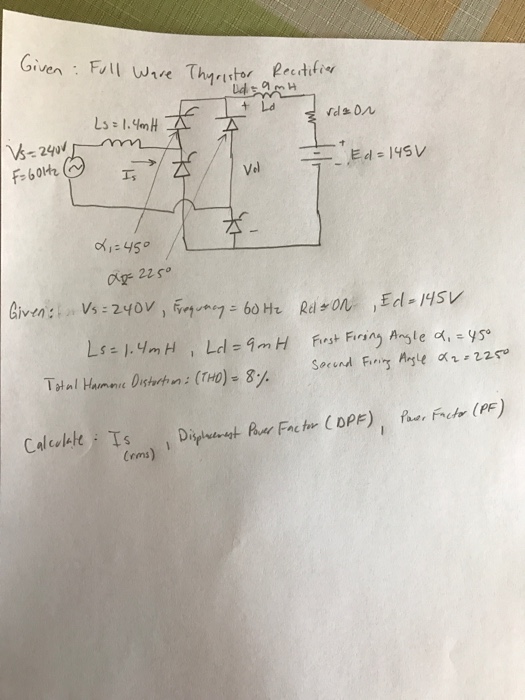 Given : Full Wave Thyristor Recitifier
Ld = 9mH
+ Ld
rd≈0Ω
Ls = 1.4mH
Vs=240V
F=60Hz
Is
Vd
+
Ed = 145V
-
-
α1=45°
α2= 225°
Given: Vs = 240V, Frequency = 60 Hz Rd≈0Ω , Ed = 145V
Ls = 1.4mH , Ld = 9mH First Firing Angle α1 = 45°
Second Firing Angle α2 = 225°
Total Harmonic Distortion: (THD) = 8%
Calculate : Is , Displacement Power Factor (DPF), Power Factor (PF)
(rms)